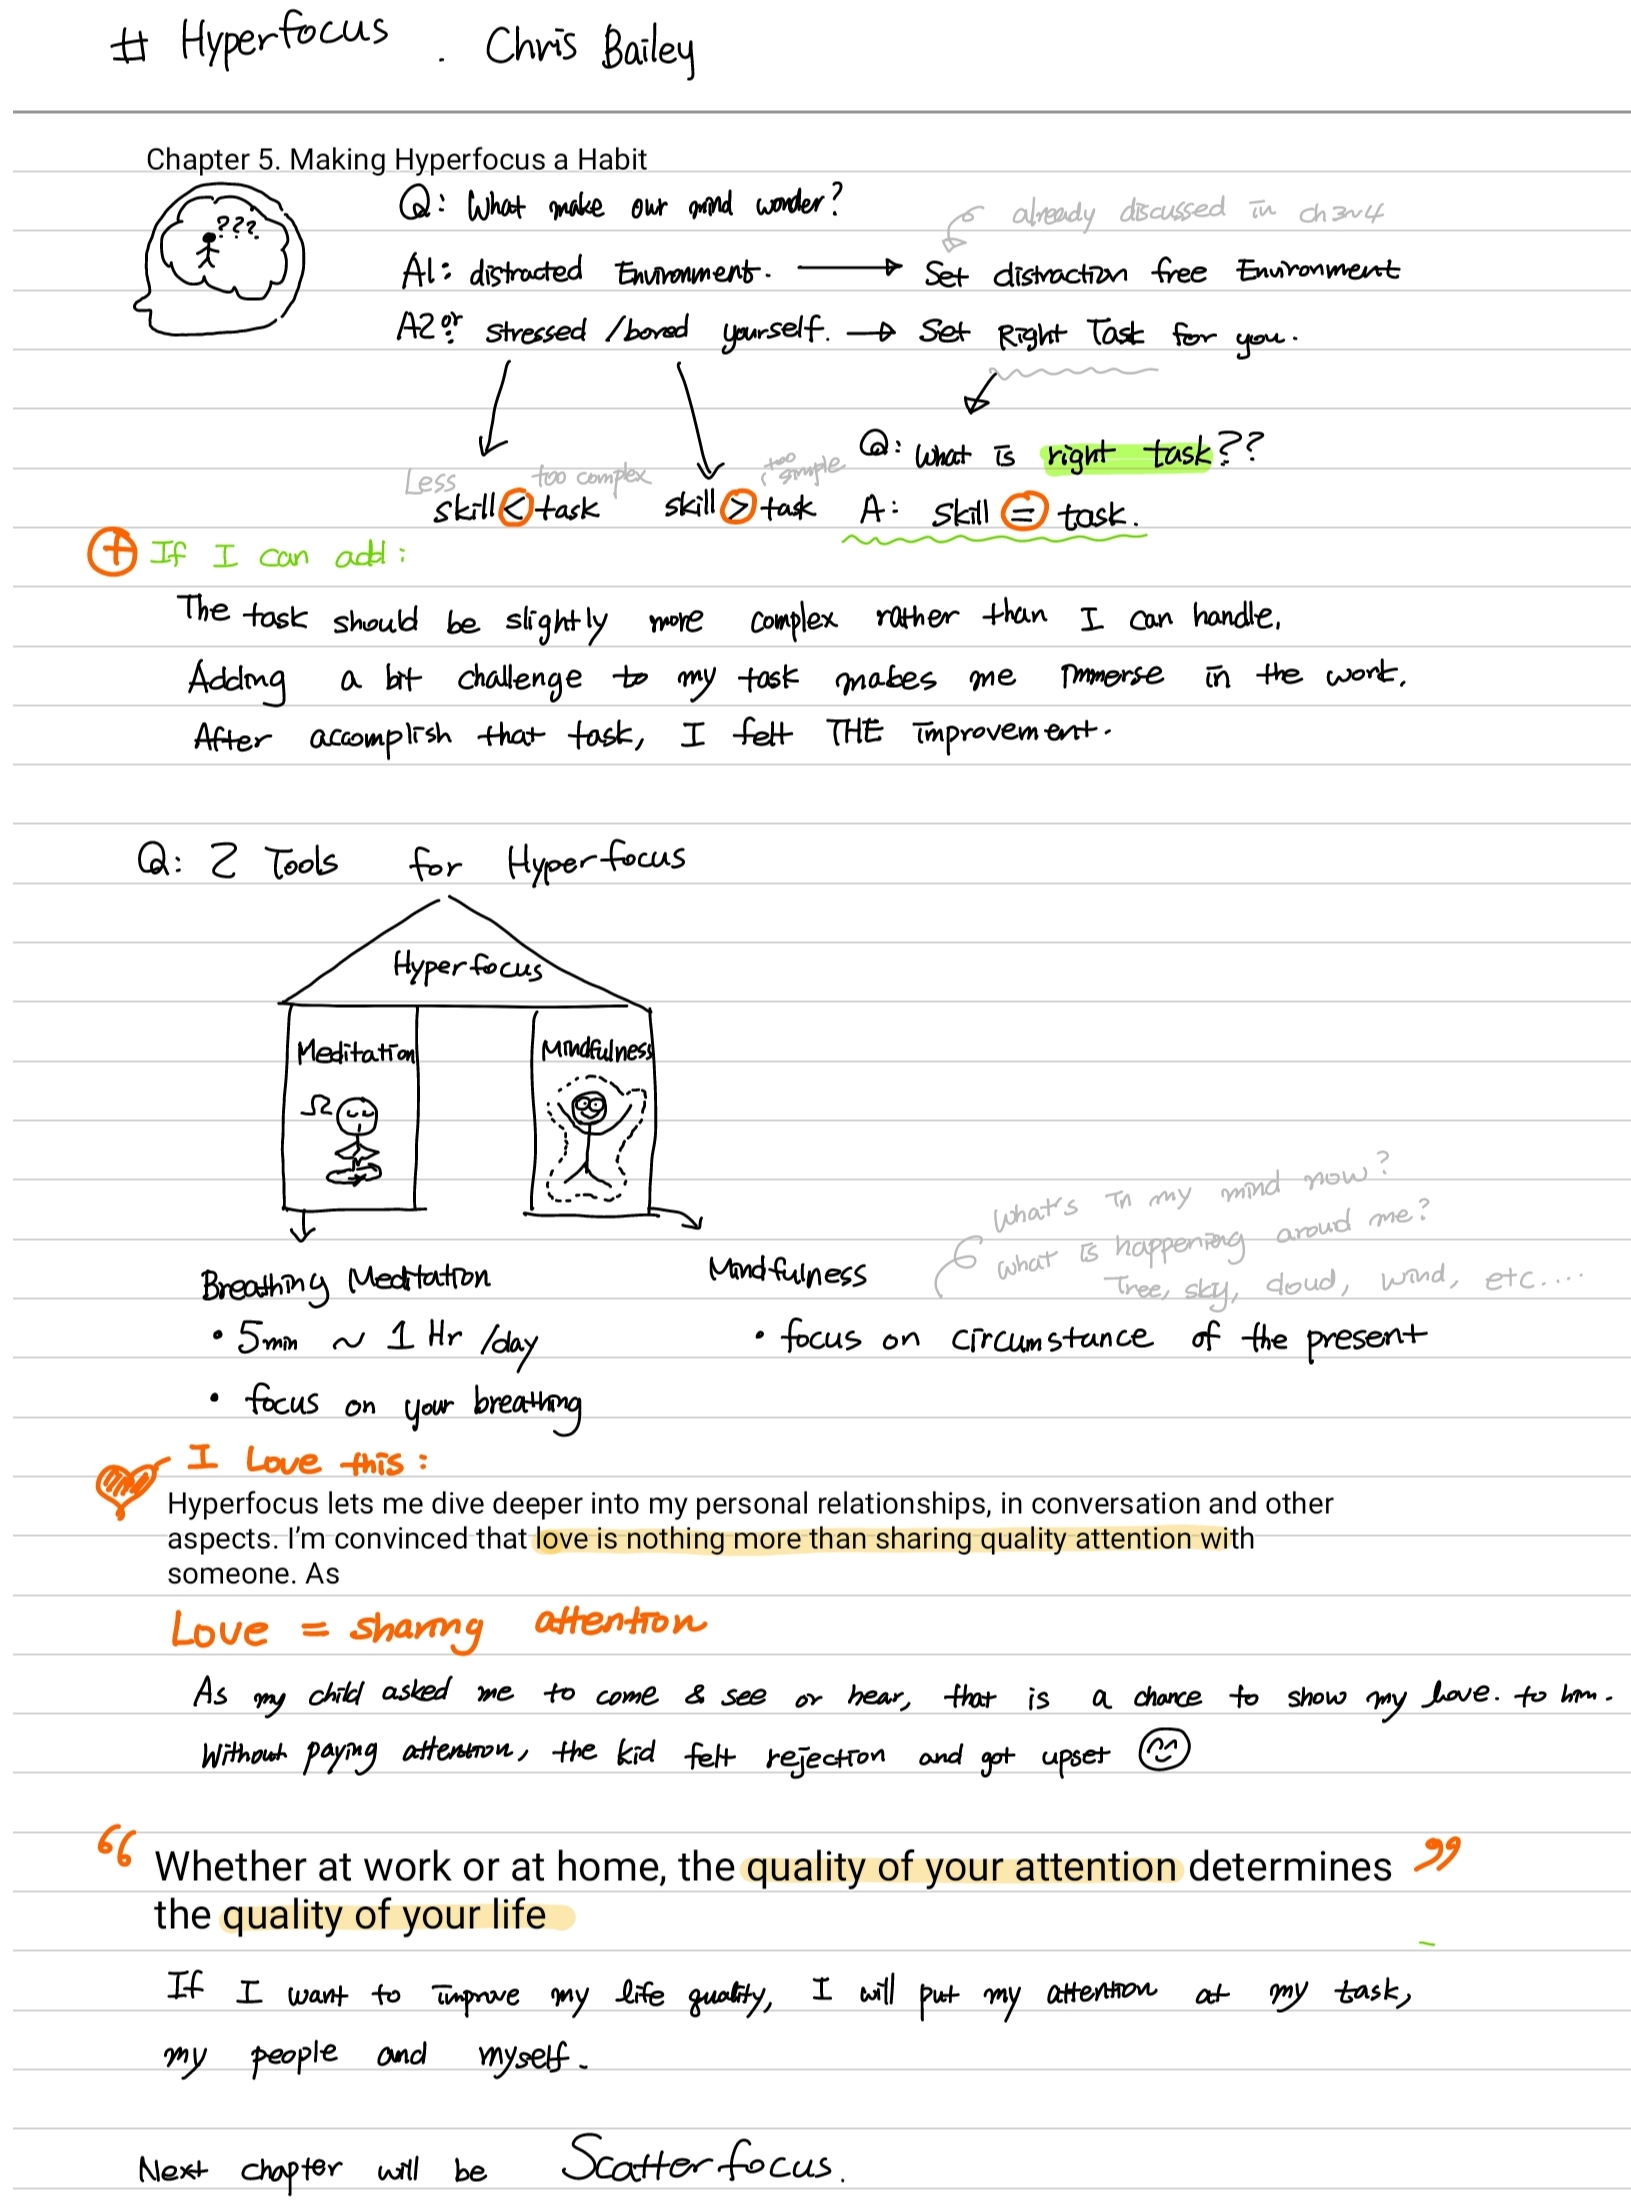 # Hyperfocus . Chris Bailey
Chapter 5. Making Hyperfocus a Habit
???
Q: What make our mind wonder?
already discussed in ch 3~4
A1: distracted Environment. → Set distraction free Environment
A2: or stressed / bored yourself. → Set Right Task for you.
Q: What is right task??
Less too complex
too simple
skill < task skill > task A: skill = task.
+ If I can add:
The task should be slightly more complex rather than I can handle,
Adding a bit challenge to my task makes me immerse in the work.
After accomplish that task, I felt THE improvement.
Q: 2 Tools for Hyperfocus
Hyperfocus
Meditation Mindfulness
What's in my mind now?
what is happening aroud me?
Tree, sky, cloud, wind, etc....
Breathing Meditation Mindfulness
• 5min ~ 1 Hr /day • focus on circumstance of the present
• focus on your breathing
I Love this:
Hyperfocus lets me dive deeper into my personal relationships, in conversation and other
aspects. I'm convinced that love is nothing more than sharing quality attention with
someone. As
Love = sharing attention
As my child asked me to come & see or hear, that is a chance to show my love. to him.
Without paying attention, the kid felt rejection and got upset
“ Whether at work or at home, the quality of your attention determines ”
the quality of your life
If I want to improve my life quality, I will put my attention at my task,
my people and myself.
Next chapter will be Scatterfocus.